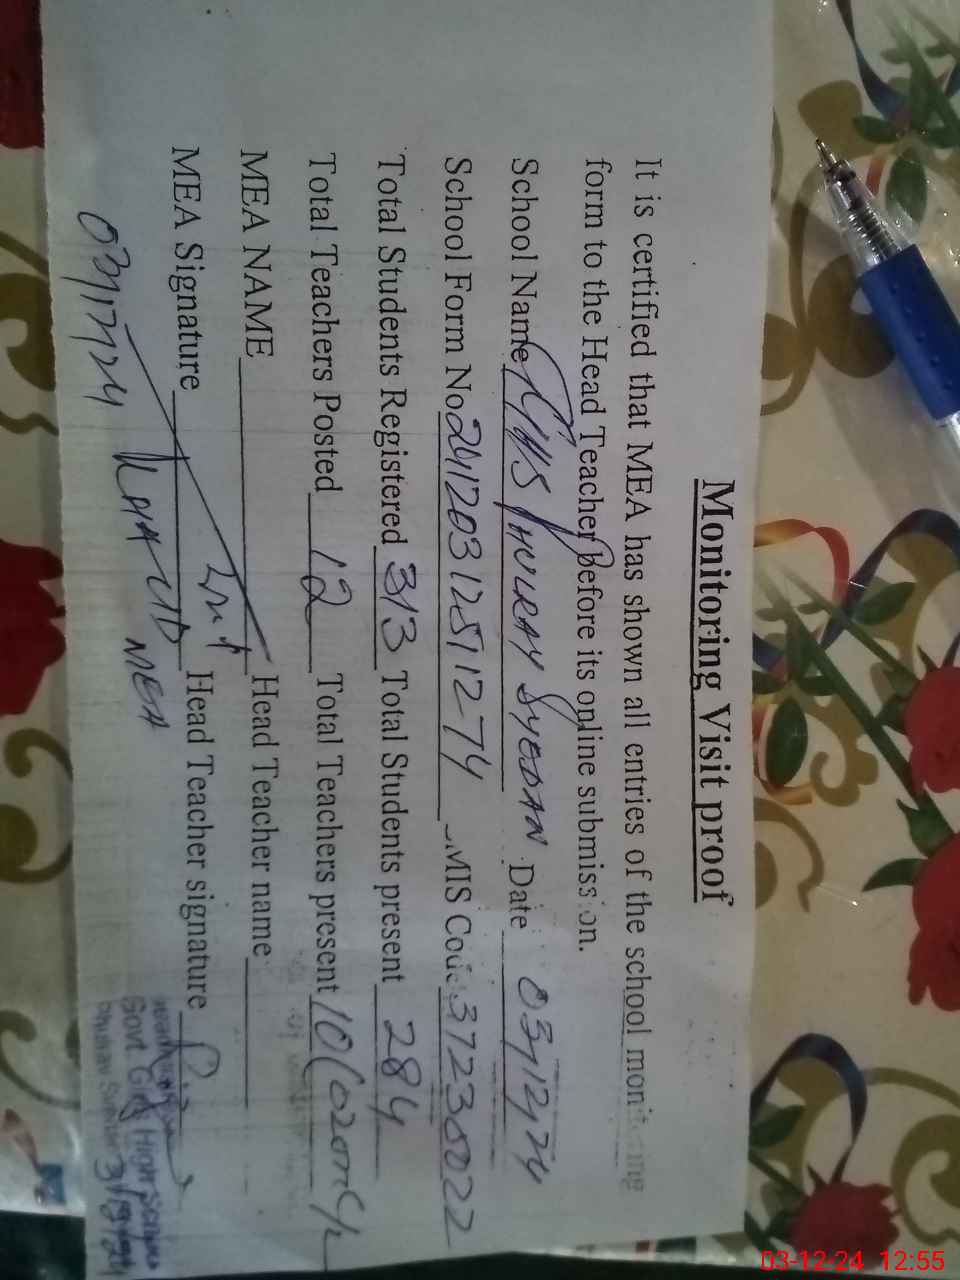 Monitoring Visit proof
It is certified that MEA has shown all entries of the school monitoring
form to the Head Teacher before its online submission.
School Name GGHS PHULRAY SYEDAN Date 03/12/24
School Form No 24120312511274 EMIS Code 37230022
Total Students Registered 313 Total Students present 284
Total Teachers Posted 12 Total Teachers present 10 (02 on C/L
MEA NAME Head Teacher name
MEA Signature Head Teacher signature
03/12/24 MEA
Govt. Girls High School
3/12/24
03-12-24 12:55